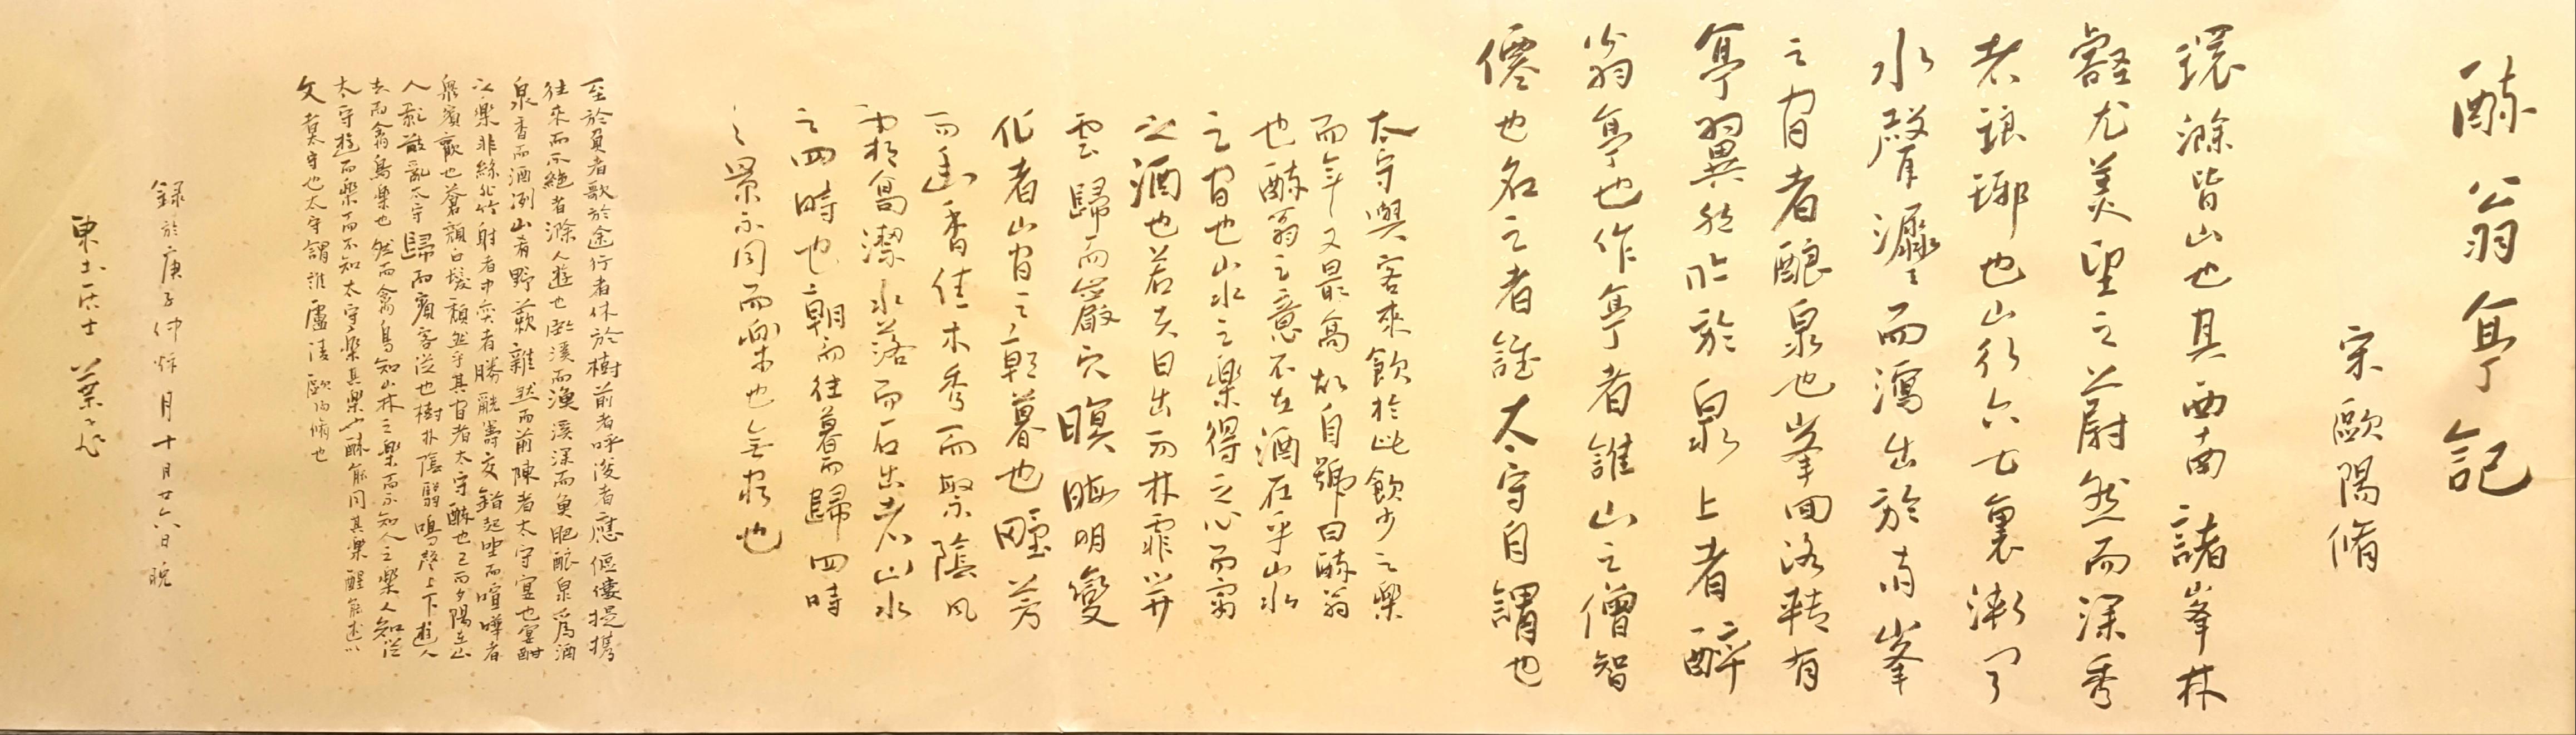 醉翁亭記
宋歐陽脩
環滁皆山也其西南諸峯林
壑尤美望之蔚然而深秀
者琅琊也山行六七裏漸聞
水聲潺潺而瀉出於兩峯
之間者釀泉也峯回路轉有
亭翼然臨於泉上者醉
翁亭也作亭者誰山之僧智
僊也名之者誰太守自謂也
太守與客來飲於此飲少之樂
而年又最高故自號曰醉翁
也醉翁之意不在酒在乎山水
之間也山水之樂得之心而寓
之酒也若夫日出而林霏開
雲歸而巖穴暝晦明變
化者山間之朝暮也野芳
而幽香佳木秀而繁陰風
霜高潔水落而石出者山水
之四時也朝而往暮而歸四時
之景不同而樂也無窮也
至於負者歌於途行者休於樹前者呼後者應傴僂提攜
往來而不絕者滁人遊也臨溪而漁溪深而魚肥釀泉爲酒
泉香而酒冽山肴野蔌雜然而前陳者太守宴也宴酣
之樂非絲非竹射者中奕者勝觥籌交錯起坐而喧嘩者
衆賓歡也蒼顏白髮頹然乎其間者太守醉也已而夕陽在山
人影散亂太守歸而賓客從也樹林陰翳鳴聲上下遊人
去而禽鳥樂也然而禽鳥知山林之樂而不知人之樂人知從
太守遊而樂而不知太守樂其樂也醉能同其樂醒能述以
文者太守也太守謂誰廬陵歐陽脩也
錄於庚子仲秋月十月廿六日晚
東土居士葉